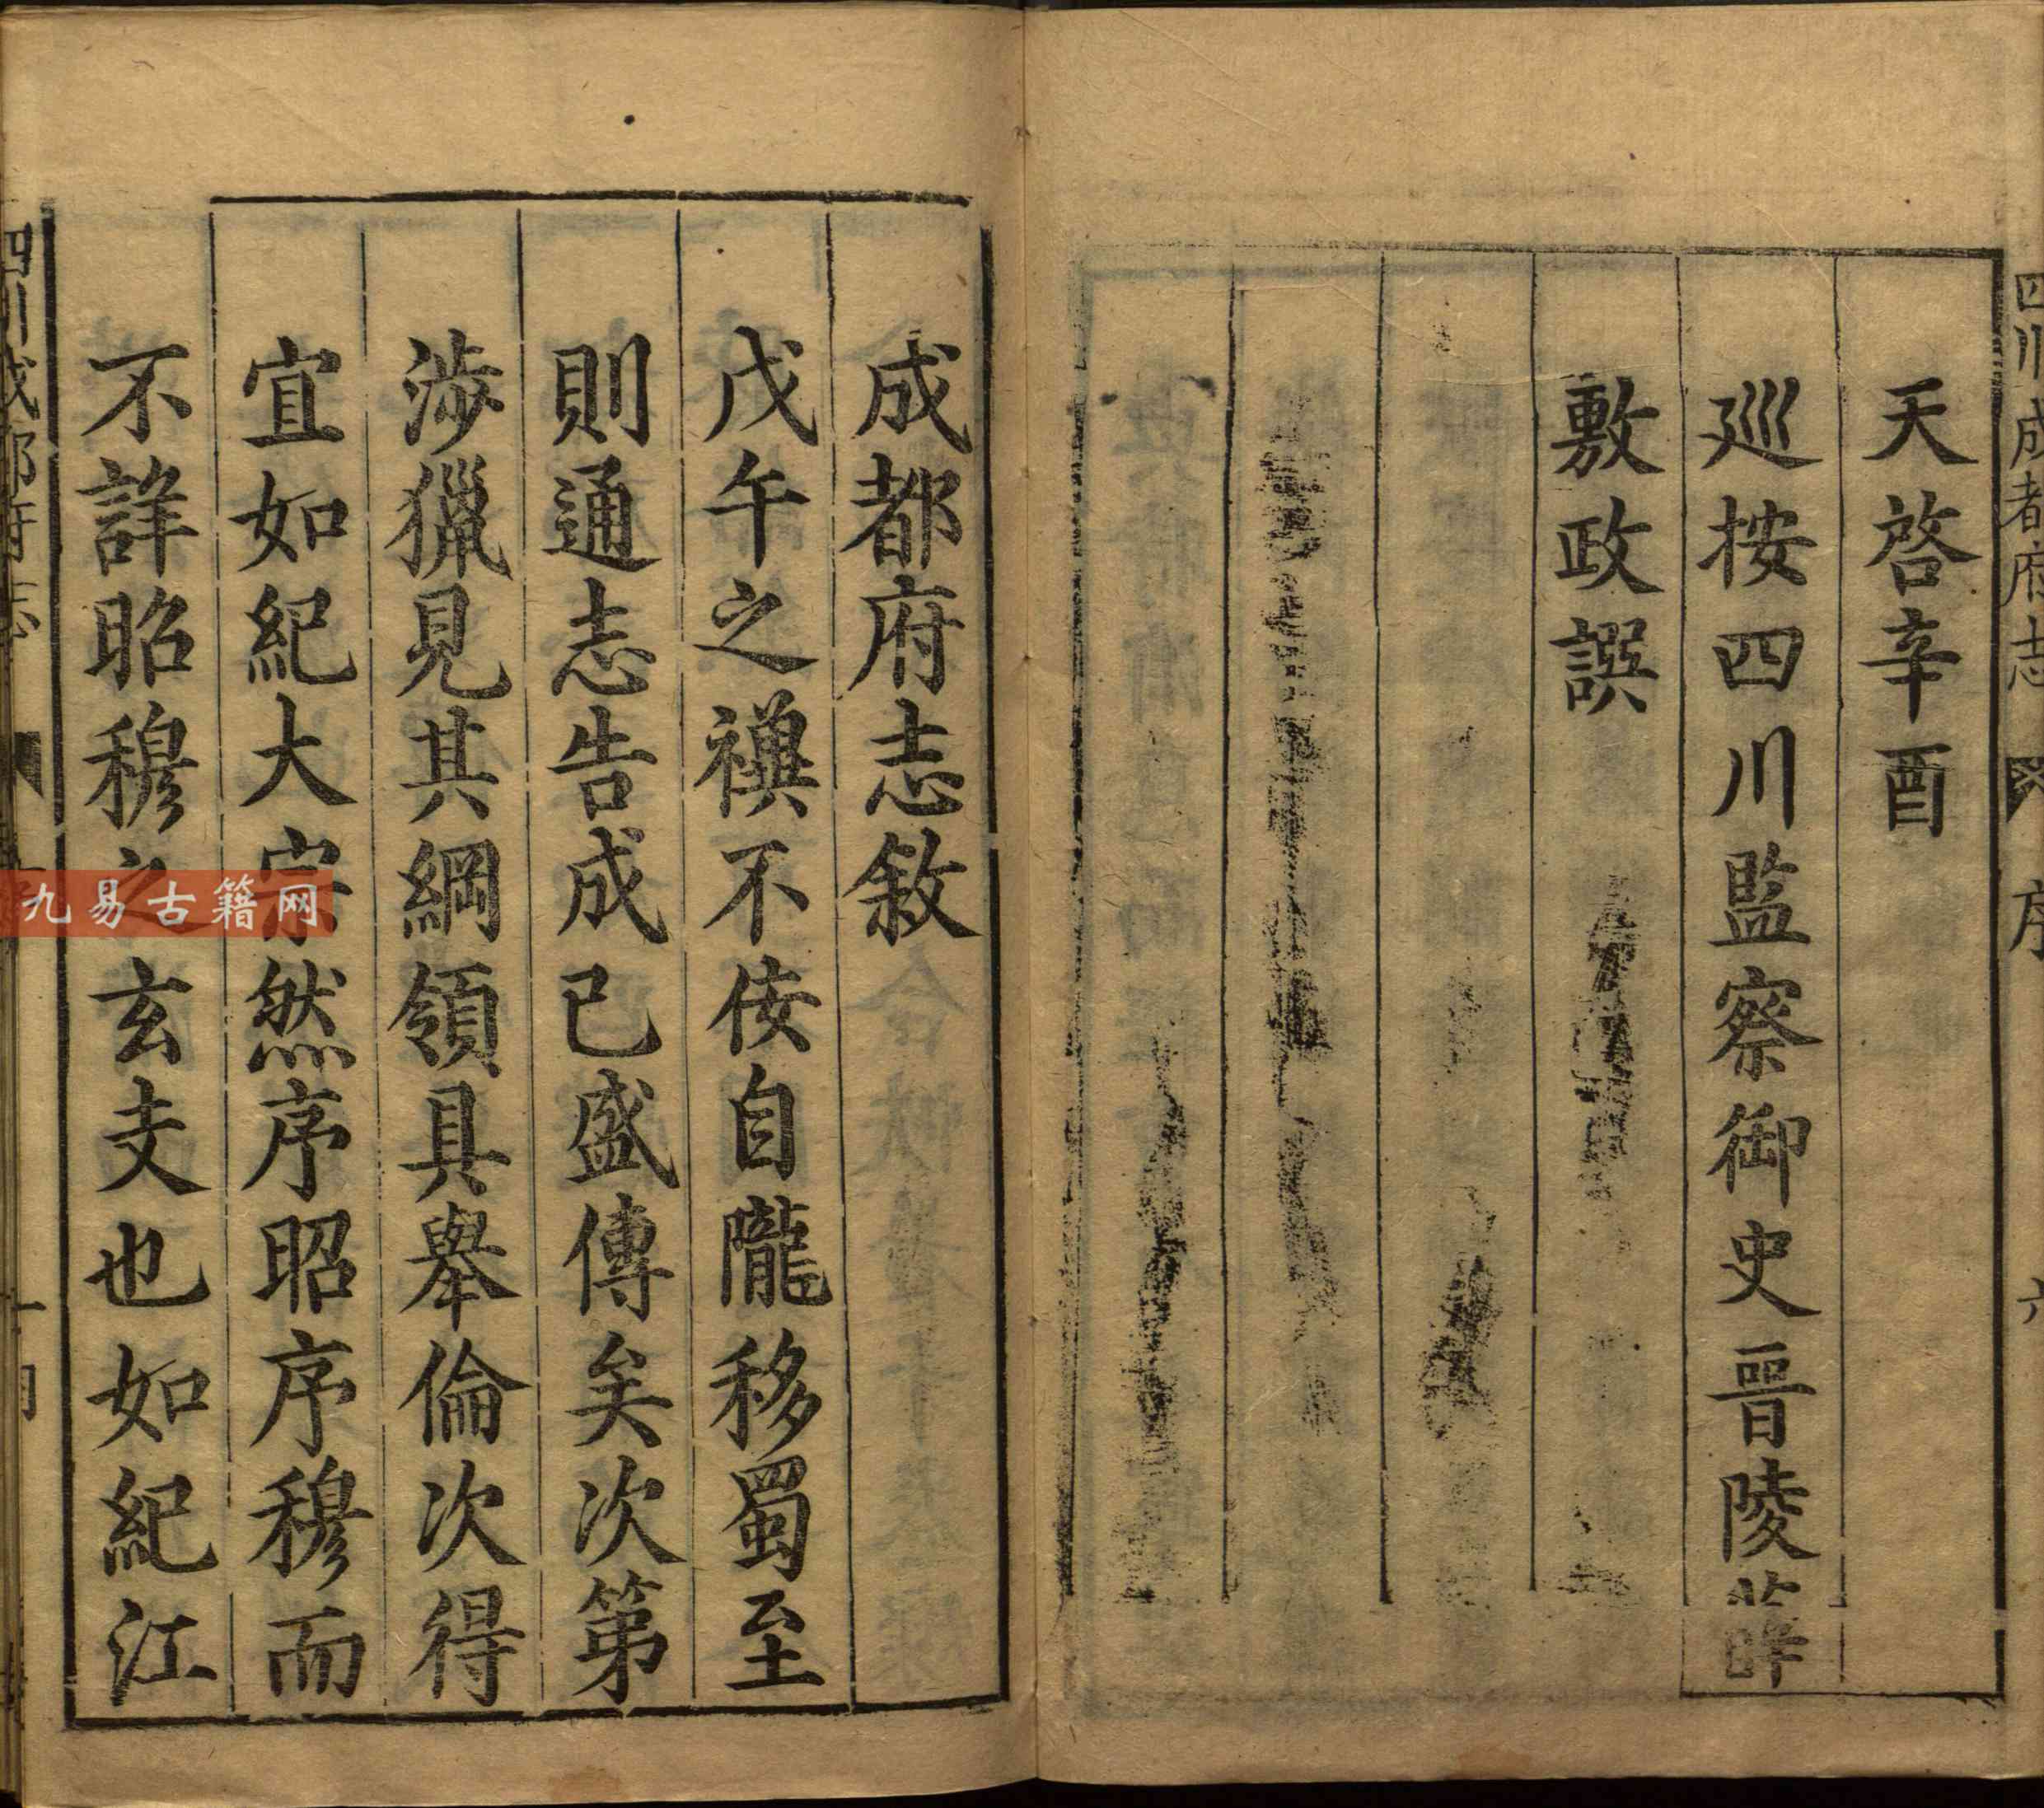 四川成都府志 序 六
天啓辛酉
廵按四川監察御史晉陵薛
敷政譔
成都府志敘
戊午之禩不侫自隴移蜀至
則通志告成已盛傳矣次第
涉獵見其綱領具舉倫次得
宜如紀大宗然序昭序穆而
不詳昭穆之玄支也如紀江
四川成都府志
九易古籍网